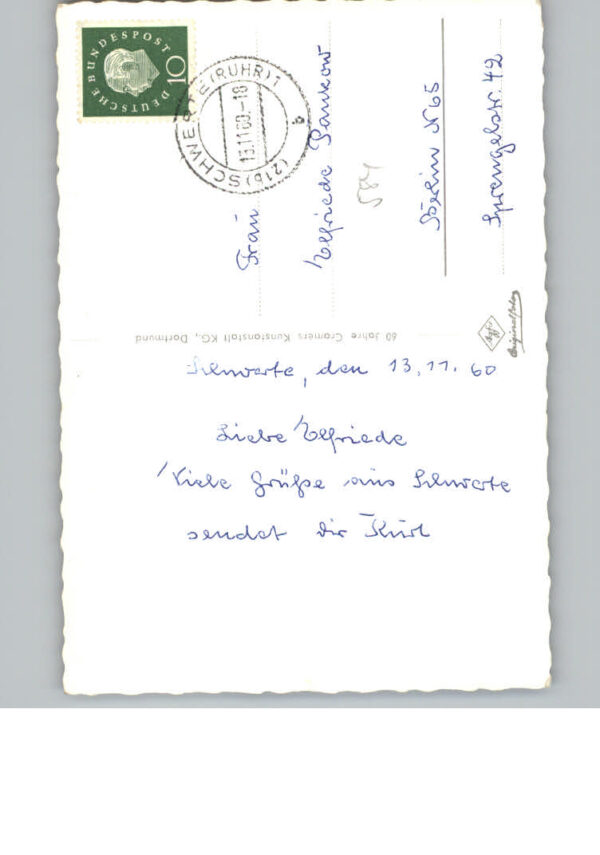 DEUTSCHE BUNDESPOST
10
(21b) SCHWERTE (RUHR) 1
13.11.60.-18
b
Frau
Elfriede Pankow
584
Berlin N 65
Sprengelstr. 42
60 Jahre Cramers Kunstanstalt KG., Dortmund
Agfa
Originalfoto
Schwerte, den 13.11.60
Liebe Elfriede
Viele Grüße aus Schwerte
sendet dir Kurt